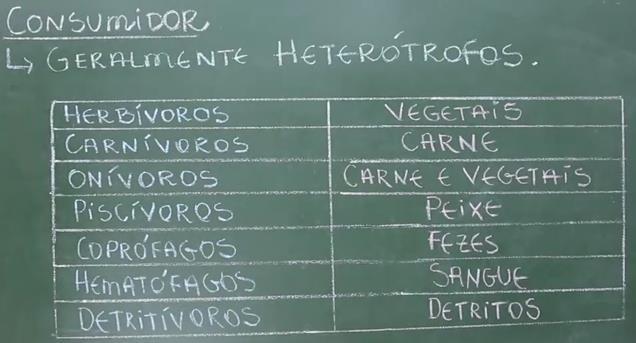 CONSUMIDOR
↳ GERALMENTE HETERÓTROFOS.
HERBÍVOROS VEGETAIS
CARNÍVOROS CARNE
ONÍVOROS CARNE E VEGETAIS
PISCÍVOROS PEIXE
COPRÓFAGOS FEZES
HEMATÓFAGOS SANGUE
DETRITÍVOROS DETRITOS